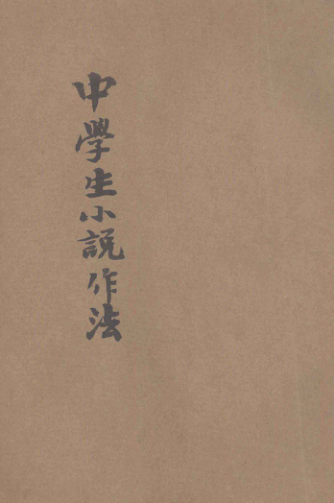 中學生小説作法